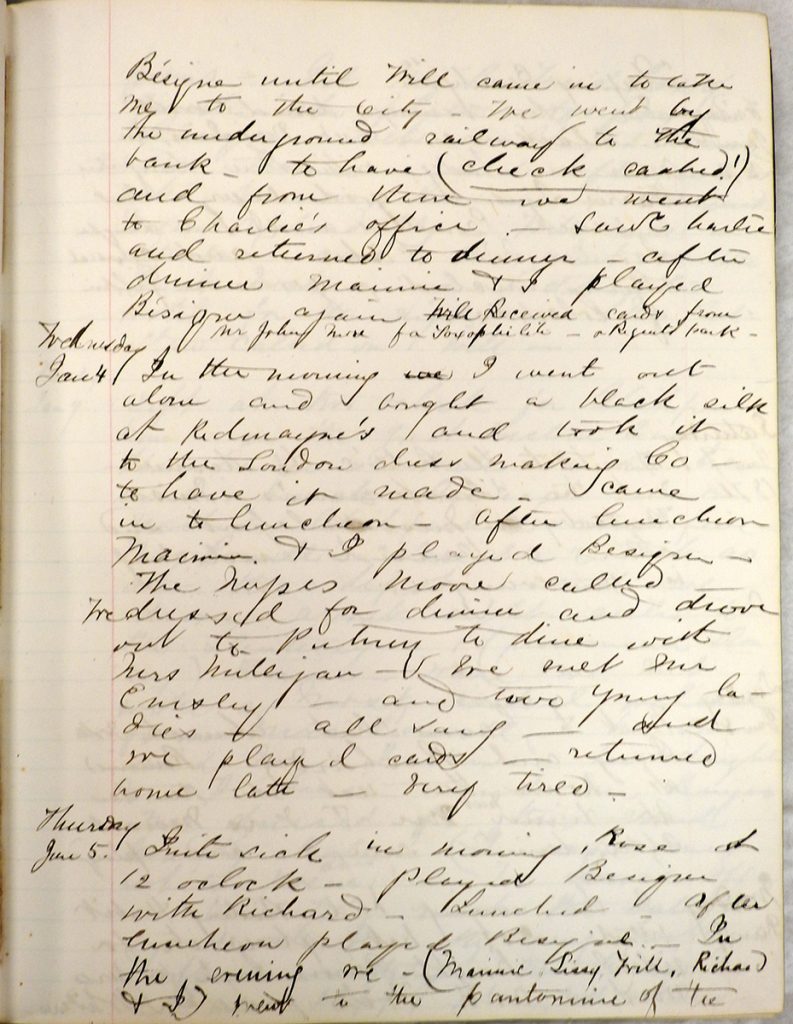 Bésigne until Will came in to take
me to the City - We went by
the underground railway to the
bank - to have (check cashed!)
and from there we went
to Charlie's office - Saw Charlie
and returned to dinner - after
dinner Maimie & I played
Bésigne again Will Received cards from
Mr John More for Toxophilite - Regents Park -
Wednesday
Jan 4 In the morning we I went out
alone and bought a black silk
at Redmayne's and took it
to the London dress making Co -
to have it made - I came
in to luncheon - After luncheon
Maimie & I played Besigne -
The Misses Moore called
We dressed for dinner and drove
out to Putney to dine with
Mrs Milligan - We met Mr
Emsley - and two young la-
dies - all sang - and
we played cards - returned
home late - Very tired -
Thursday
Jan 5. Quite sick in morning, Rose at
12 oclock - played Besigne
with Richard - Lunched - After
luncheon played Besigne - In
the evening we - (Maimie Lissy Will, Richard
& I) went to the pantomime of the